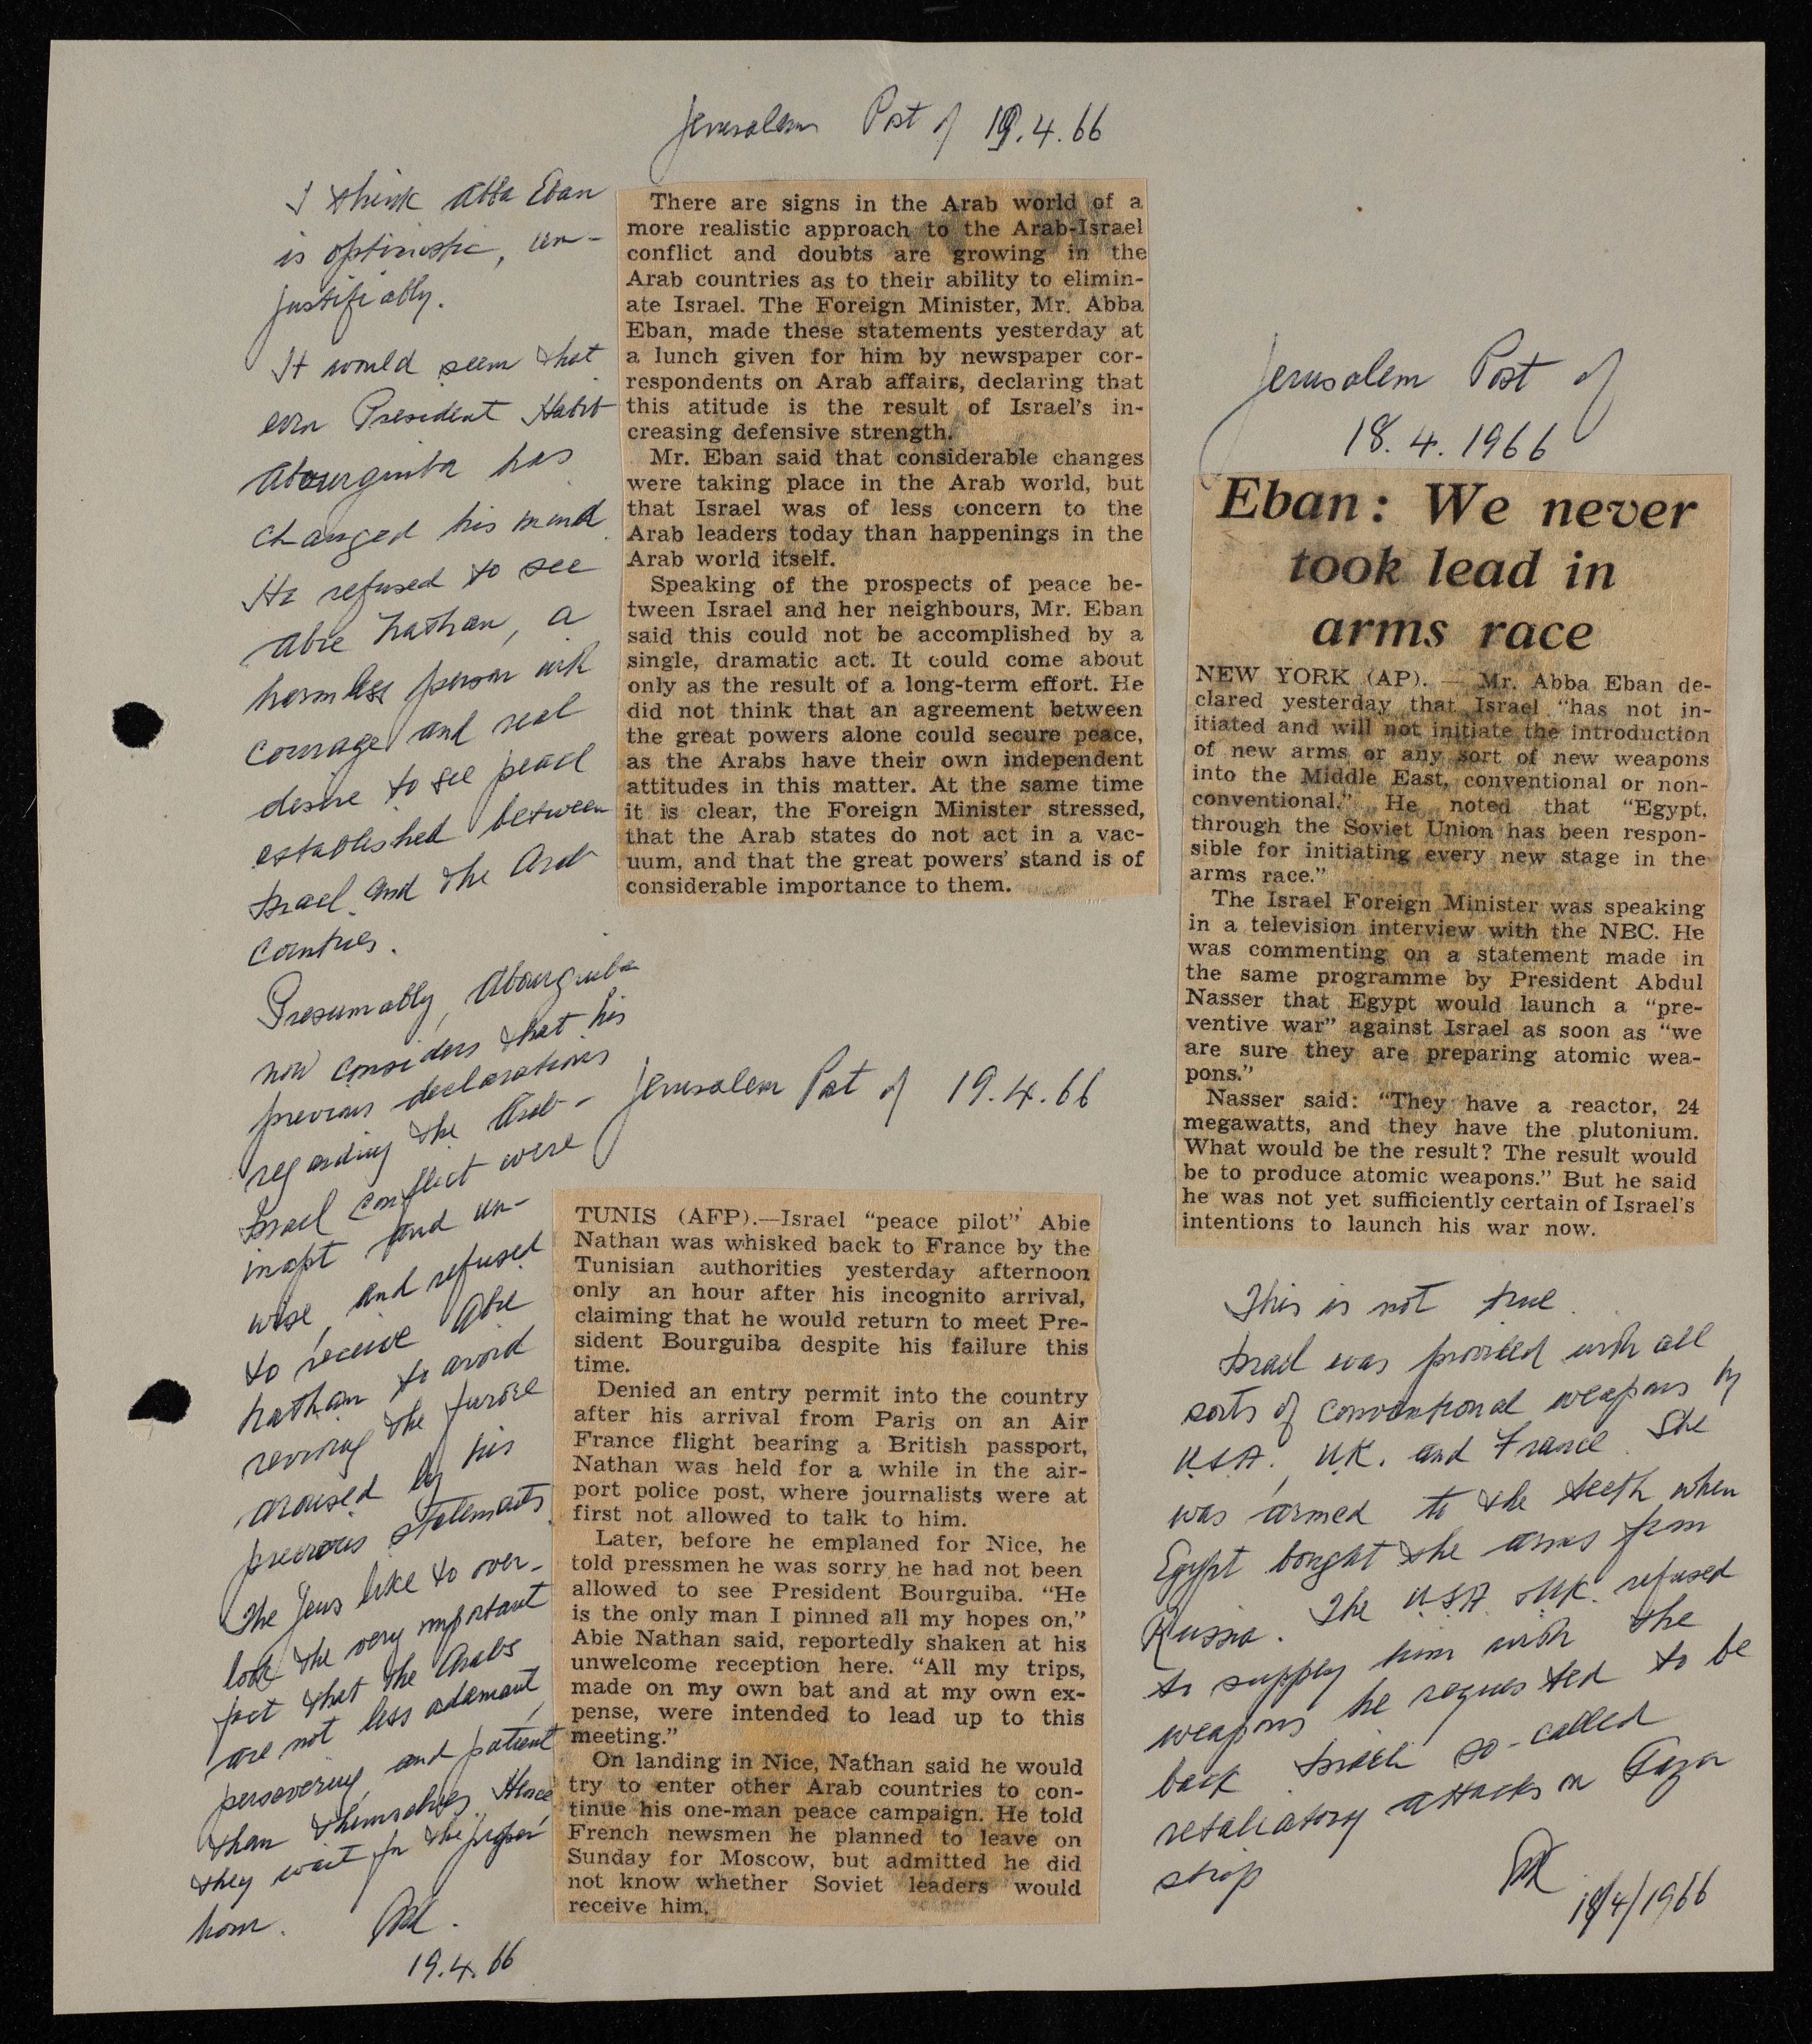 Jerusalem Post of 19.4.66
I think Abba Eban
is optimistic, un-
justifiably.
It would seem that
even President Habib
Abourguiba has
changed his mind.
He refused to see
Abie Nathan, a
harmless person with
courage and real
desire to see peace
established between
Israel and the Arab
countries.
Presumably, Abourguiba
now considers that his
previous declarations
regarding the Arab-
Israel conflict were
inapt and un-
wise, and refused
to receive Abie
Nathan to avoid
reviving the furore
aroused by his
previous statements.
The Jews like to over-
look the very important
fact that the Arabs
are not less adamant,
persevering and patient
than themselves. Hence
they wait for the proper
hour.
19.4.66
There are signs in the Arab world of a
more realistic approach to the Arab-Israel
conflict and doubts are growing in the
Arab countries as to their ability to elimin-
ate Israel. The Foreign Minister, Mr. Abba
Eban, made these statements yesterday at
a lunch given for him by newspaper cor-
respondents on Arab affairs, declaring that
this atitude is the result of Israel's in-
creasing defensive strength.
Mr. Eban said that considerable changes
were taking place in the Arab world, but
that Israel was of less concern to the
Arab leaders today than happenings in the
Arab world itself.
Speaking of the prospects of peace be-
tween Israel and her neighbours, Mr. Eban
said this could not be accomplished by a
single, dramatic act. It could come about
only as the result of a long-term effort. He
did not think that an agreement between
the great powers alone could secure peace,
as the Arabs have their own independent
attitudes in this matter. At the same time
it is clear, the Foreign Minister stressed,
that the Arab states do not act in a vac-
uum, and that the great powers' stand is of
considerable importance to them.
Jerusalem Post of 19.4.66
TUNIS (AFP).—Israel "peace pilot" Abie
Nathan was whisked back to France by the
Tunisian authorities yesterday afternoon
only an hour after his incognito arrival,
claiming that he would return to meet Pre-
sident Bourguiba despite his failure this
time.
Denied an entry permit into the country
after his arrival from Paris on an Air
France flight bearing a British passport,
Nathan was held for a while in the air-
port police post, where journalists were at
first not allowed to talk to him.
Later, before he emplaned for Nice, he
told pressmen he was sorry he had not been
allowed to see President Bourguiba. "He
is the only man I pinned all my hopes on,"
Abie Nathan said, reportedly shaken at his
unwelcome reception here. "All my trips,
made on my own bat and at my own ex-
pense, were intended to lead up to this
meeting."
On landing in Nice, Nathan said he would
try to enter other Arab countries to con-
tinue his one-man peace campaign. He told
French newsmen he planned to leave on
Sunday for Moscow, but admitted he did
not know whether Soviet leaders would
receive him.
Jerusalem Post of
18.4.1966
Eban: We never
took lead in
arms race
NEW YORK (AP). — Mr. Abba Eban de-
clared yesterday that Israel "has not in-
itiated and will not initiate the introduction
of new arms or any sort of new weapons
into the Middle East, conventional or non-
conventional." He noted that "Egypt,
through the Soviet Union has been respon-
sible for initiating every new stage in the
arms race."
The Israel Foreign Minister was speaking
in a television interview with the NBC. He
was commenting on a statement made in
the same programme by President Abdul
Nasser that Egypt would launch a "pre-
ventive war" against Israel as soon as "we
are sure they are preparing atomic wea-
pons."
Nasser said: "They have a reactor, 24
megawatts, and they have the plutonium.
What would be the result? The result would
be to produce atomic weapons." But he said
he was not yet sufficiently certain of Israel's
intentions to launch his war now.
This is not true.
Israel was provided with all
sorts of conventional weapons by
U.S.A., U.K. and France. She
was armed to the teeth when
Egypt bought the arms from
Russia. The U.S.A. U.K. refused
to supply him with the
weapons he requested to be
back Israeli so-called
retaliatory attacks on Gaza
strip
18/4/1966